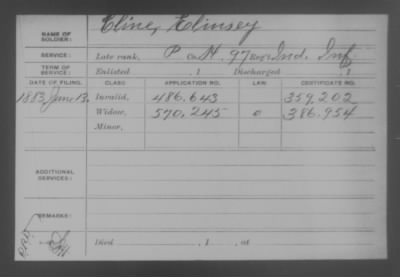 NAME OF SOLDIER: Cline, Elinsey
SERVICE: Late rank, P Co. H, 97 Reg't Ind. Inf
TERM OF SERVICE: Enlisted , 1 Discharged , 1
DATE OF FILING. CLASS. APPLICATION NO. LAW. CERTIFICATE NO.
1883, June 13. Invalid, 486.643 359.202
Widow, 570.245 o 386.954
Minor,
ADDITIONAL SERVICES:
REMARKS:
Died , 1 , at